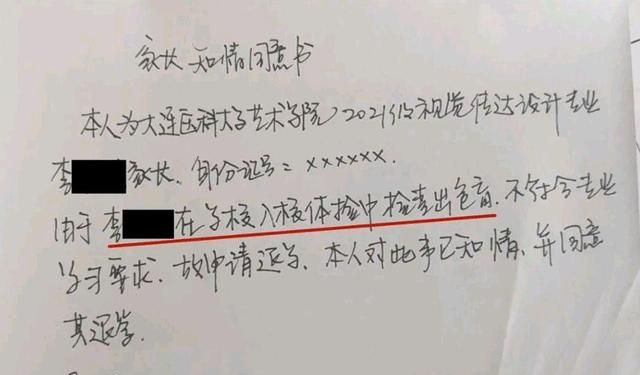 家长知情同意书
本人为大连医科大学艺术学院2021级视觉传达设计专业
李家长、身份证号:xxxxxx.
由于李在学校入校体检中检查出色盲.不符合专业
学习要求.故申请退学.本人对此事已知情,并同意
其退学.